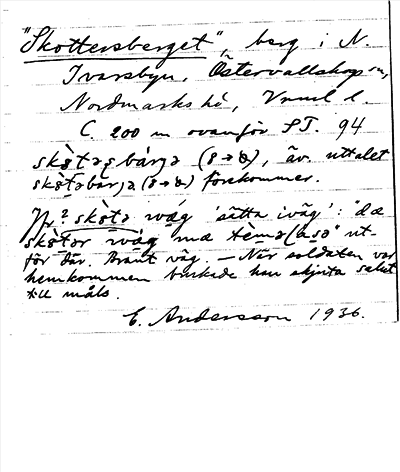 "Skottersberget", berg i N.
Ivarsbyn, Östervallskogs sn,
Nordmarks hd, Vrml l.
C. 200 m ovanför ST. 94
skòtəs̥bárjə (8→ɵ), äv. uttalet
skòtəbárjə (8→ɵ) förekommer.
Jfr? skòtə wǽg 'sätta iväg': "dæ
skòtər wǽg mæ
för där. Brant väg. – När soldaten var
hemkommen brukade han skjuta salut
till måls.
E. Andersson 1936.